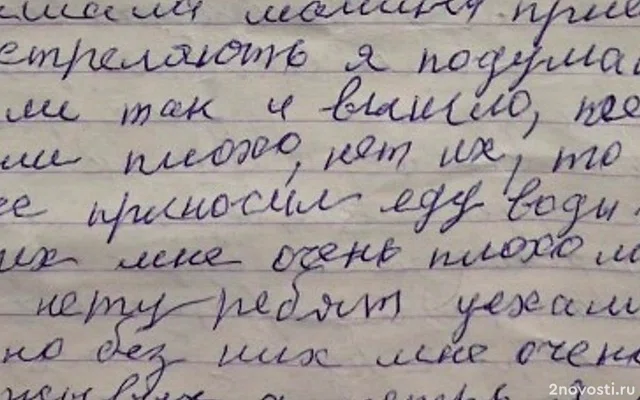 машина прие
стрелять я подума
ми так и вышло, по
ми плохо, нет их, то
ее приносил еду воды
их мне очень плохо м
нету ребят уехали
но без них мне очень
2novosti.ru